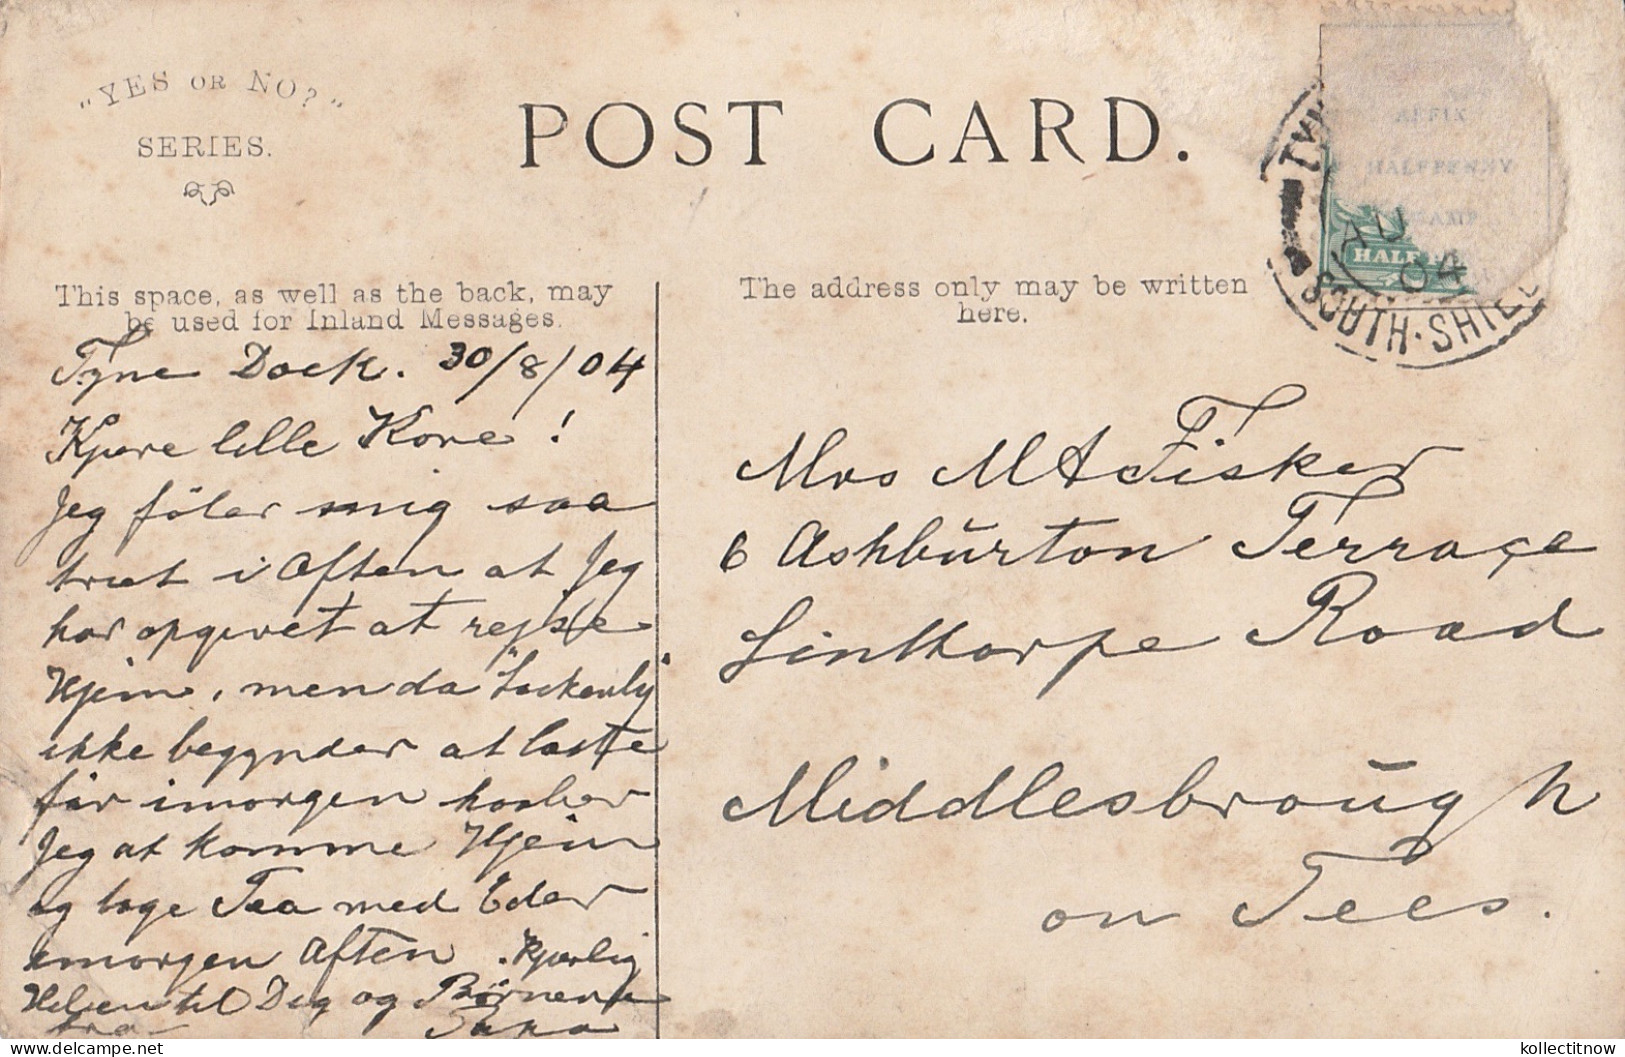 "YES OR NO?"
SERIES.
POST CARD.
AFFIX
HALFPENNY
STAMP
HALF PE
TY
AU
04
SOUTH·SHIEL
This space, as well as the back, may
be used for Inland Messages.
The address only may be written
here.
Tyne Dock. 30/8/04
Kjære lille Kone!
Jeg föler mig saa
træt i Aften at Jeg
har opgivet at rejse
Hjem, men da "Lackenby"
ikke begynder at laste
før imorgen haaber
Jeg at komme Hjem
og tage Tea med Eder
imorgen Aften. Kjærlig
Hilsen til Dig og Börnene
fra Papa
Mrs M A Fisker
6 Ashburton Terrace
Linthorpe Road
Middlesbrough
on Tees.
kollectitnow